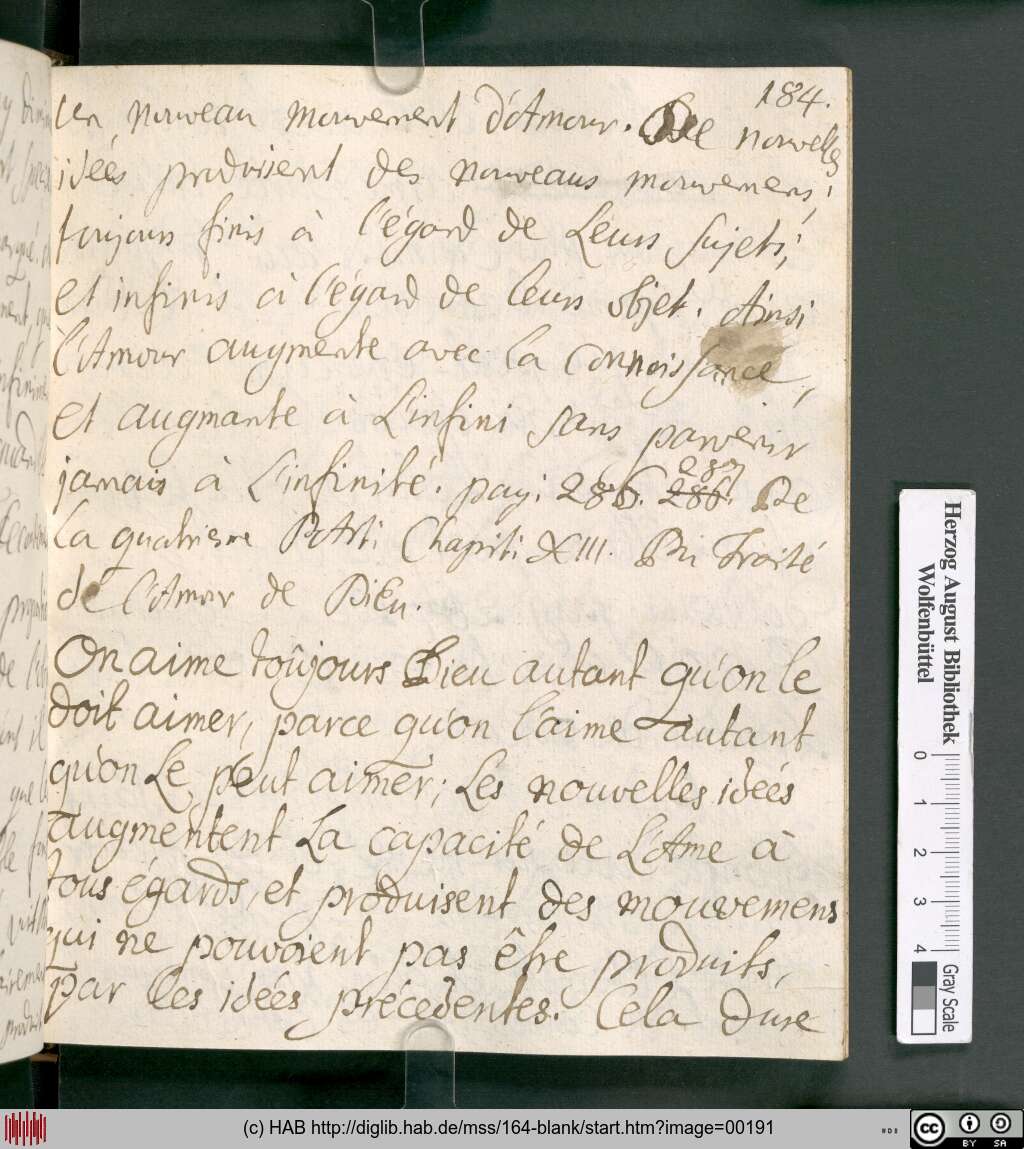 184.
un nouveau mouvement d'Amour. De nouvelles
idées produisent des nouveaus mouvemens,
toujours finis à l'égard de Leurs Sujets,
et infinis à l'égard de leurs objet. Ainsi
l'Amour augmente avec la Connoissance,
et augmante à L'infini sans parvenir
jamais à L'infinité. pag: 286. 286. 287 De
La quatriesme Parti Chapiti XIII. Du Traité
de l'Amour de Dieu.
On aime toûjours Dieu autant qu'on le
doit aimer, parce qu'on l'aime autant
qu'on Le peut aimer; Les nouvelles idées
augmentent La capacité de L'Ame à
tous égards, et produisent des mouvemens
qui ne pouvoient pas être produits,
par les idées précedentes. Cela dure
Herzog August Bibliothek
Wolfenbüttel
0 1 2 3 4
Gray Scale
(c) HAB http://diglib.hab.de/mss/164-blank/start.htm?image=00191
cc BY SA